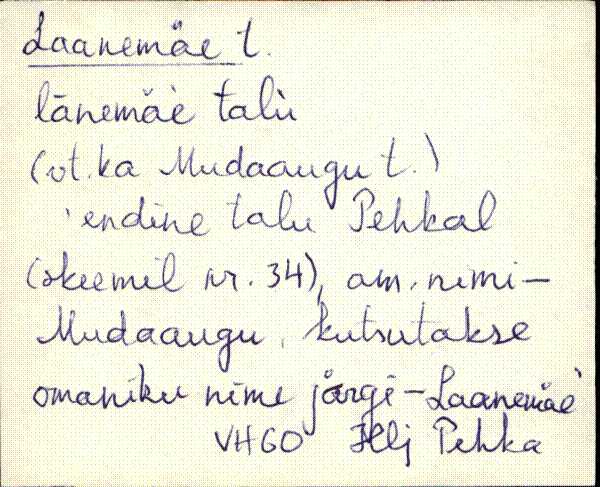 Laanemäe t.
lānemäè talù
(vt. ka Mudaaugu t.)
endine talu Pehkal
(skeemil nr. 34), am. nimi –
Mudaaugu, kutsutakse
omaniku nime järgi – Laanemäe
VHGO Helj Pehka